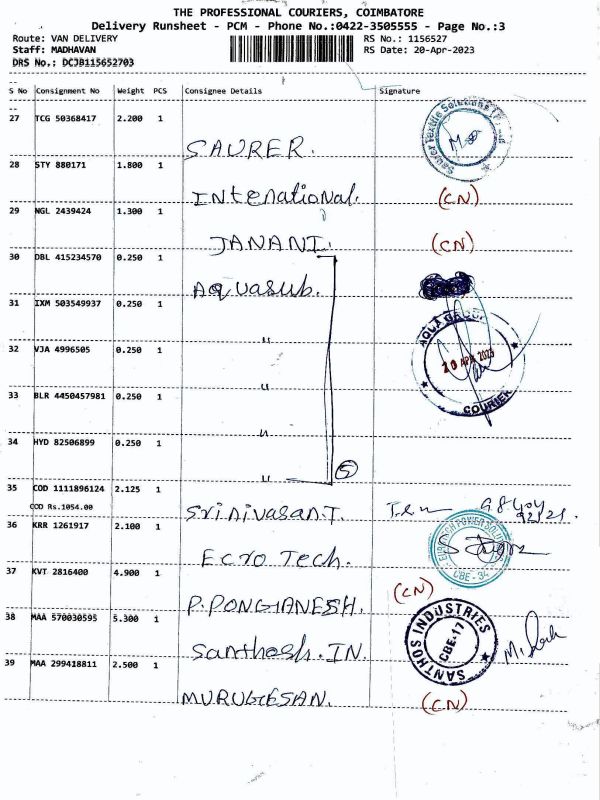 THE PROFESSIONAL COURIERS, COIMBATORE
Delivery Runsheet - PCM - Phone No.:0422-3505555 - Page No.:3
Route: VAN DELIVERY RS No.: 1156527
Staff: MADHAVAN RS Date: 20-Apr-2023
DRS No.: DCJB115652703
S No Consignment No Weight PCS Consignee Details Signature
27 TCG 50368417 2.200 1 SAURER.
28 STY 880171 1.800 1 International. (CN)
29 NGL 2439424 1.300 1 JANANI. (CN)
30 DBL 415234570 0.250 1 Aquasub.
AQUA GROUP
20 APR 2023
COURIER
31 IXM 503549937 0.250 1 "
32 VJA 4996505 0.250 1 "
33 BLR 4450457981 0.250 1 "
34 HYD 82506899 0.250 1 "
5
35 COD 1111896124 2.125 1 Srinivasan.T.
COD Rs.1054.00
36 KRR 1261917 2.100 1 Ecro Tech.
CBE - 34
37 KVT 2816400 4.900 1 P.PONGIANESH. (CN)
38 MAA 570030595 5.300 1 Santhosh. IN.
SANTHOS INDUSTRIES
CBE-17
39 MAA 299418811 2.500 1 MURUGESAN. (CN)